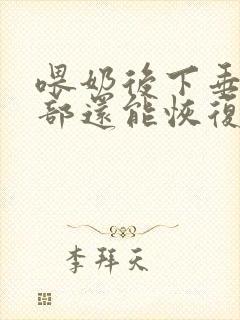 喂奶後下垂
部還能恢復
李拜天